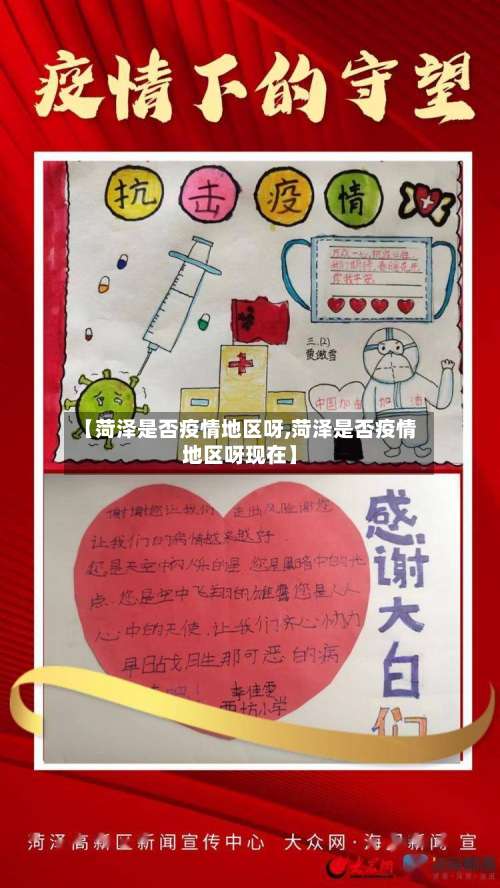 疫情下的守望
抗击疫情
三.(2)
中国加油 加油
【菏泽是否疫情地区呀,菏泽是否疫情
地区呀现在】
谢谢您让我们走出风险谢您
让我们的病情越来越好
您是黑暗中的光
点.您是空中飞翔的雄鹰您是人人
心中的天使.让我们齐心协力
早日战胜那可恶的病
李佳雯
西坊小学
感谢大白们
菏泽高新区新闻宣传中心 大众网·海报新闻 宣
大众网